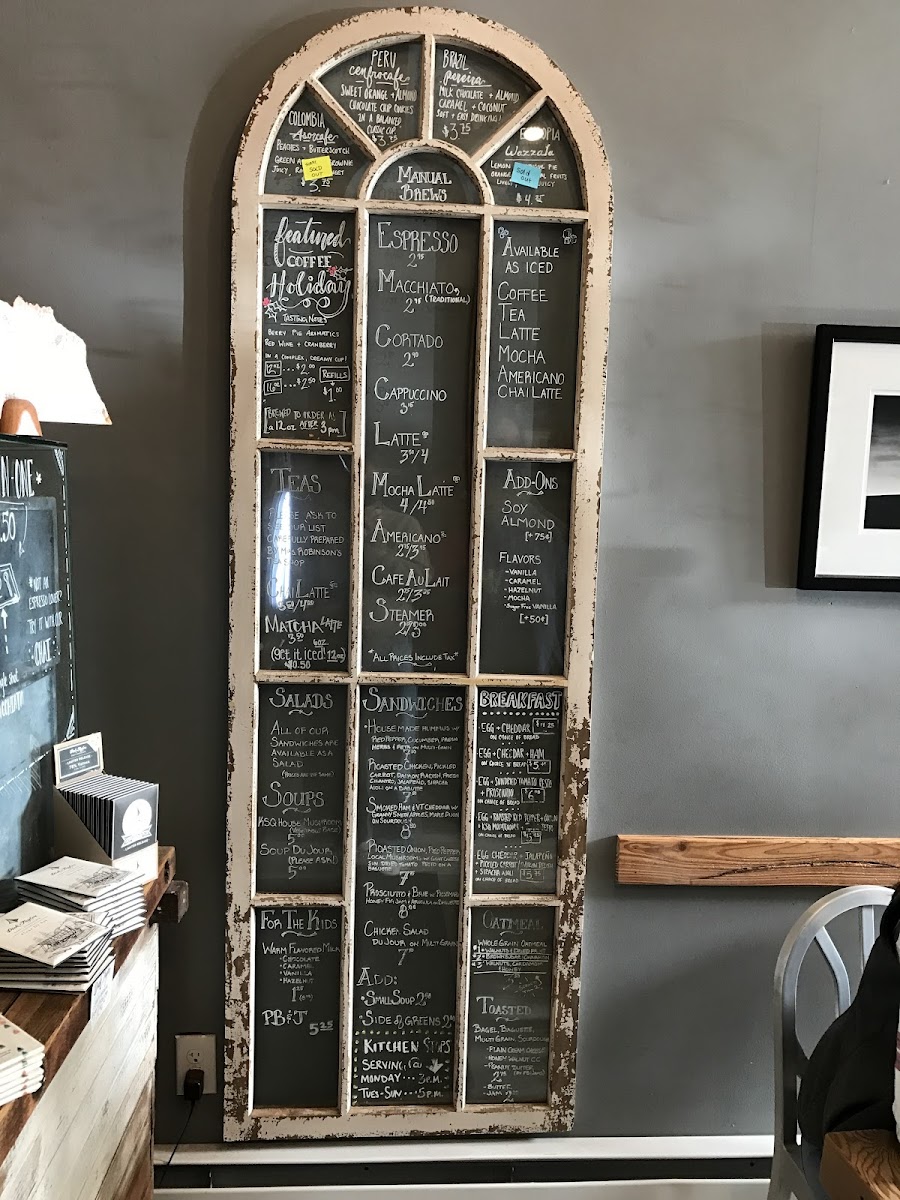 PERU
cenfrocafe
SWEET ORANGE + ALMOND
CHOCOLATE CHIP COOKIES
IN A BALANCED
CLASSIC CUP
$3.75
BRAZIL
pereira
MILK CHOCOLATE + ALMOND
CARAMEL + COCONUT
SOFT + EASY DRINKING!
$3.75
COLOMBIA
Asorcafe
PEACHES + BUTTERSCOTCH
GREEN
JUICY,
SOLD
OUT
3.75
Wazzala
LEMON PIE
FRUITS
JUICY
SOLD
OUT
$4.
MANUAL
BREWS
featured
COFFEE
Holiday
TASTING NOTES
BERRY PIE AROMATICS
RED WINE + CRANBERRY
IN A COMPLEX, CREAMY CUP!
12oz ... $2.00
REFILLS
16oz ... $2.50
$1.00
[BREWED TO ORDER AS
a 12oz AFTER 3pm]
ESPRESSO
MACCHIATO
(TRADITIONAL)
CORTADO
CAPPUCCINO
LATTE
MOCHA LATTE
AMERICANO
CAFE AU LAIT
STEAMER
"ALL PRICES INCLUDE TAX"
AVAILABLE
AS ICED
COFFEE
TEA
LATTE
MOCHA
AMERICANO
CHAI LATTE
TEAS
PLEASE ASK TO
SEE OUR LIST
CAREFULLY PREPARED
BY MRS ROBINSON'S
TEA SHOP
CHAI LATTE
MATCHA LATTE
3.50 6oz
(get it iced! 12oz)
+$0.50
ADD-ONS
SOY
ALMOND
[+75¢]
FLAVORS
-VANILLA
-CARAMEL
-HAZELNUT
-MOCHA
-Sugar Free VANILLA
[+50¢]
SALADS
ALL OF OUR
SANDWICHES ARE
AVAILABLE AS A
SALAD.
(PRICES ARE THE SAME)
SOUPS
KSQ HOUSE MUSHROOM
(VEGETABLE BASE)
SOUP DU JOUR
(PLEASE ASK!)
5.00
SANDWICHES
HOUSE MADE HUMMUS W/
RED PEPPER, CUCUMBER, FRESH
HERBS + FETA ON MULTI-GRAIN
ROASTED CHICKEN, PICKLED
CARROT, DAIKON RADISH, FRESH
CILANTRO, JALAPEÑO, SRIRACHA
AIOLI ON A BAGUETTE
SMOKED HAM & VT CHEDDAR W/
GRANNY SMITH APPLES, MAPLE DIJON
ON SOURDOUGH
ROASTED ONION, RED PEPPER,
LOCAL MUSHROOMS W/ GOAT CHEESE
SUN DRIED TOMATO PESTO ON A
BAGUETTE
PROSCIUTTO & BRIE W/ ROSEMARY
HONEY FIG JAM & ARUGULA ON BAGUETTE
CHICKEN SALAD
DU JOUR ON MULTI GRAIN
ADD:
•SMALL SOUP
•SIDE of GREENS
KITCHEN STOPS
SERVING @
MONDAY ... 3P.M.
TUES-SUN ... 5P.M.
BREAKFAST
EGG + CHEDDAR
ON CHOICE OF BREAD
EGG + CHEDDAR + HAM
ON CHOICE OF BREAD
EGG + SUNDRIED TOMATO PESTO
+ PROSCIUTTO
ON CHOICE OF BREAD
EGG + ROASTED RED PEPPER + ONION
+ KSQ MUSHROOMS
ON CHOICE OF BREAD
EGG CHEDDAR + JALAPEÑO
+ PICKLED CARROT
+ SIRACHA AIOLI
ON CHOICE OF BREAD
FOR THE KIDS
WARM FLAVORED MILK
•CHOCOLATE
•CARAMEL
•VANILLA
•HAZELNUT
PB & J
5.25
OATMEAL
WHOLE GRAIN OATMEAL
TOASTED
BAGEL, BAGUETTE,
MULTI GRAIN, SOURDOUGH
-PLAIN CREAM CHEESE
-HONEY WALNUT CC
-PEANUT BUTTER
-BUTTER
-JAM
N-ONE
.50
*NOT AN
ESPRESSO LOVER?
TRY IT WITH OUR
CHAI